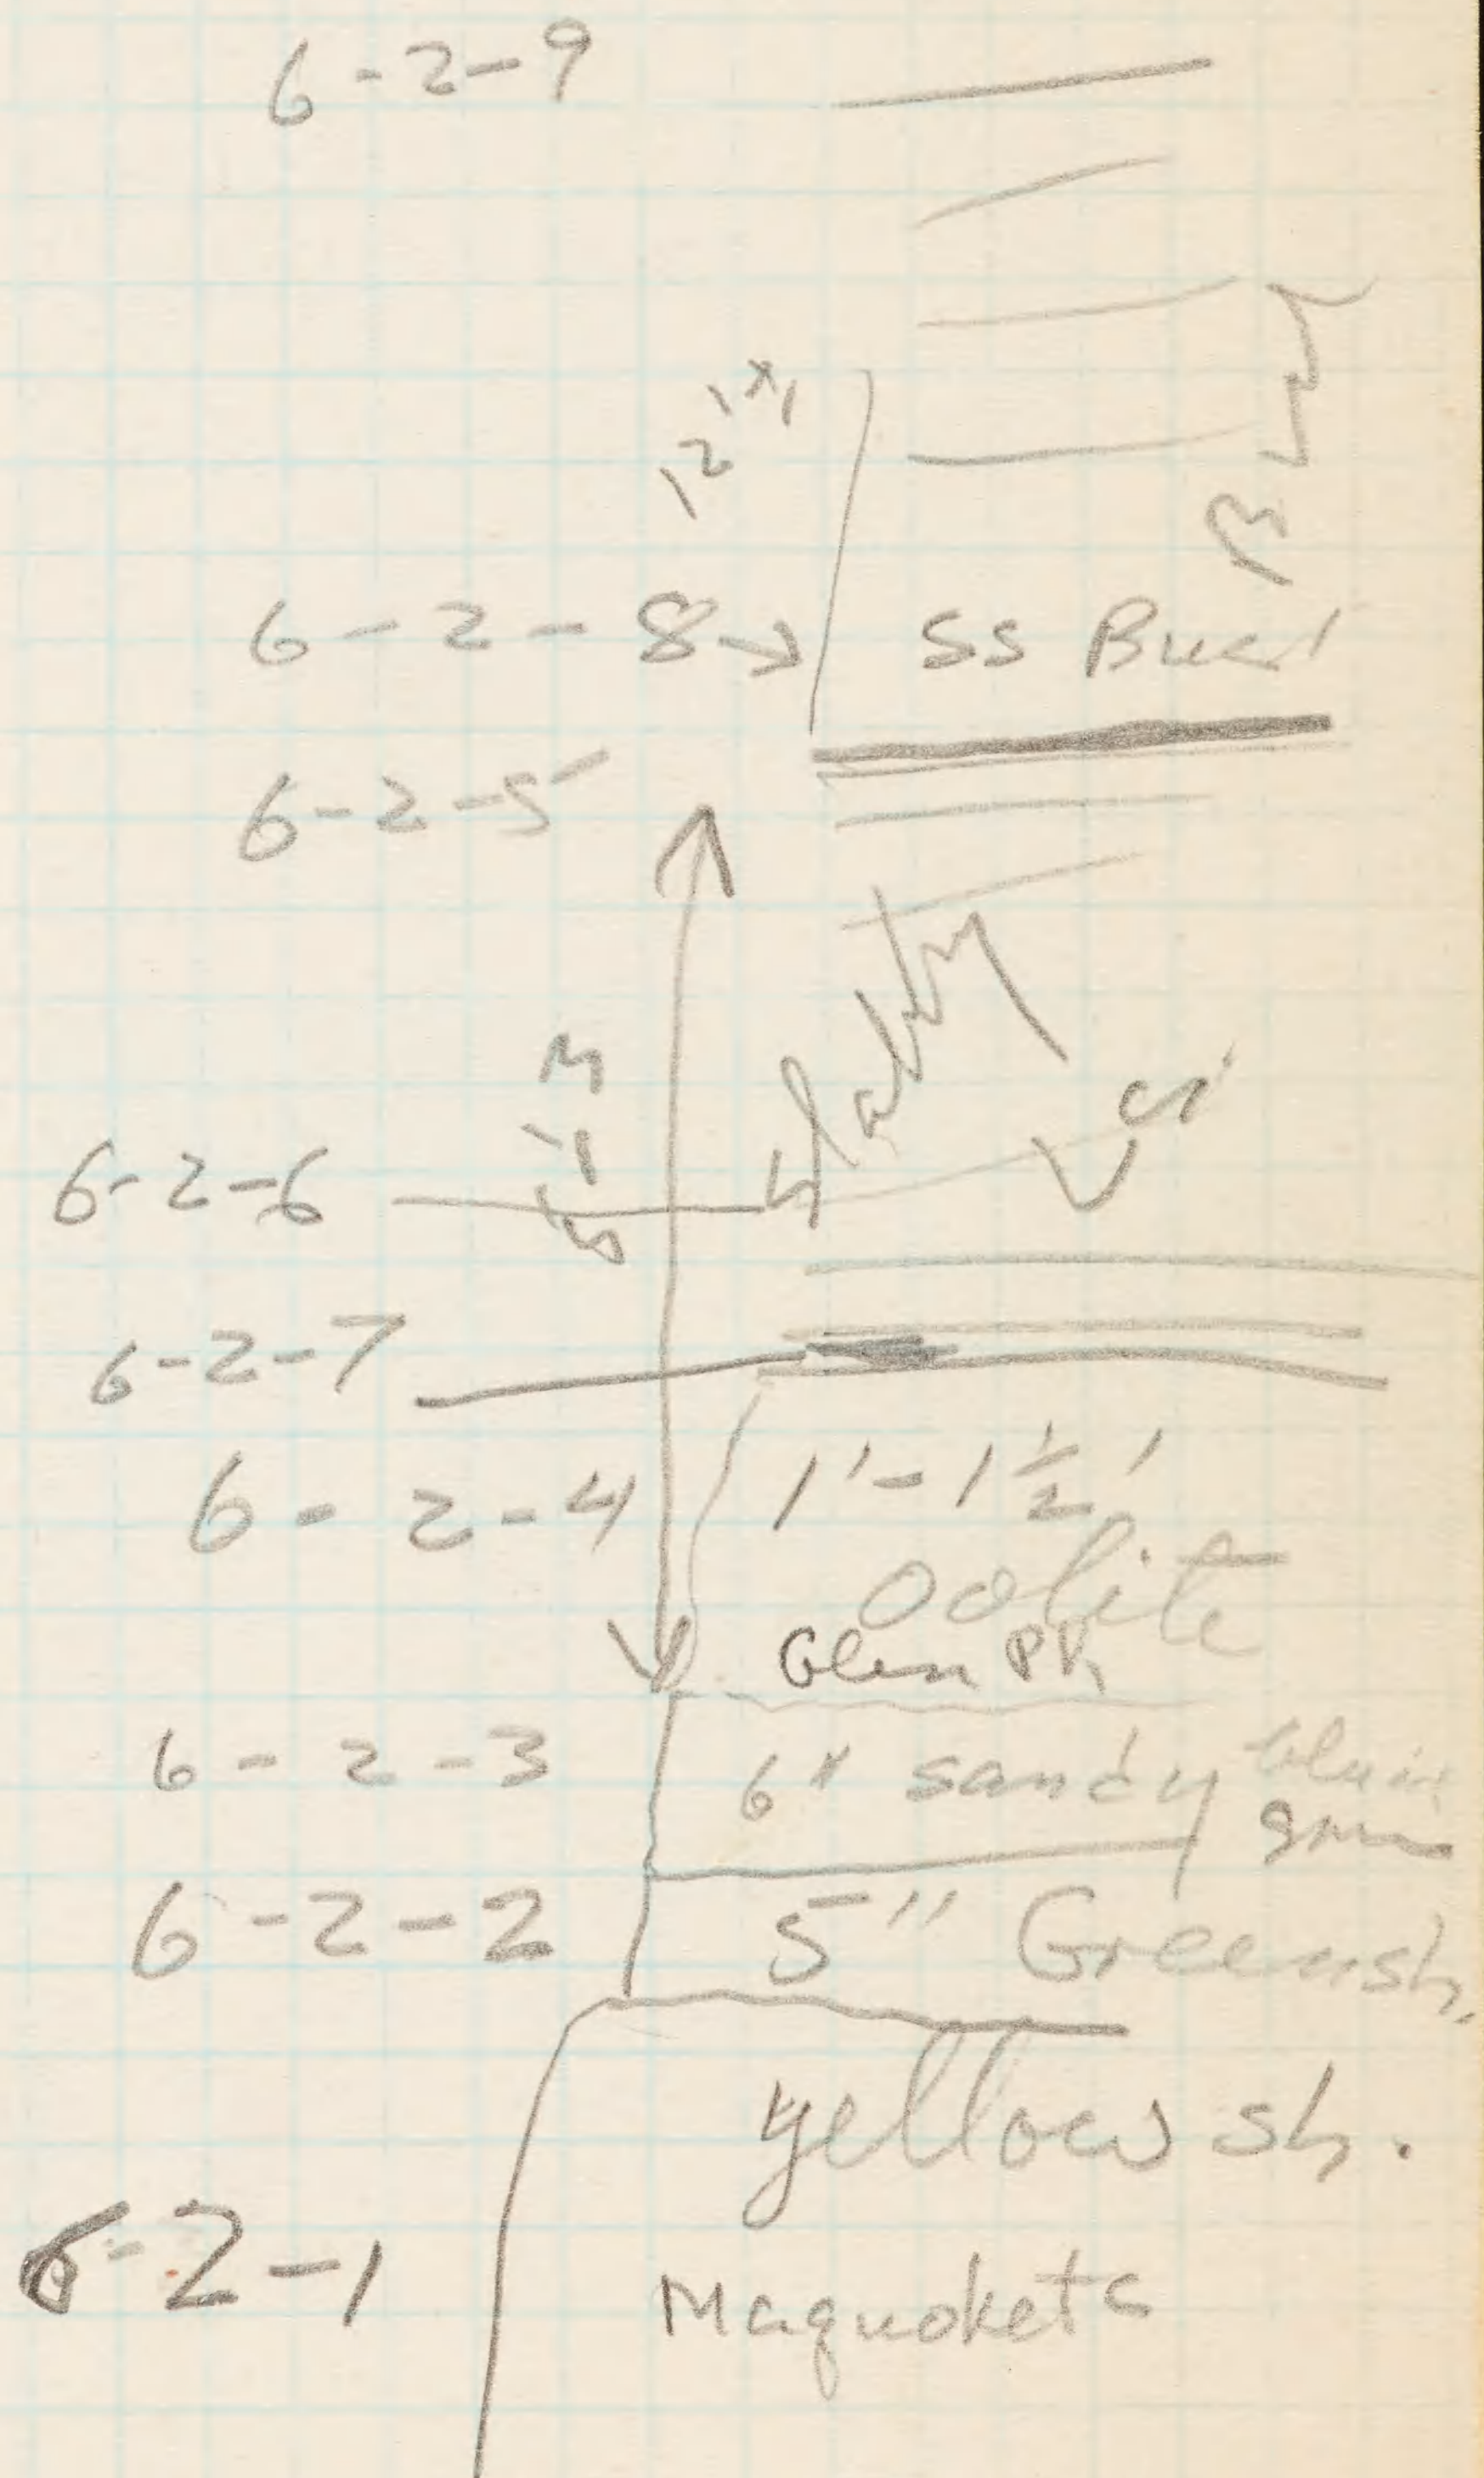 6-2-9
12"
6-2-8→ SS
6-2-5
slabby
6-2-6
6-2-7
6-2-4 1'-1½'
oolite
Glen Pk
6-2-3 6" sandy
6-2-2 5" Green sh.
yellow sh.
6-2-1
Maquoketa